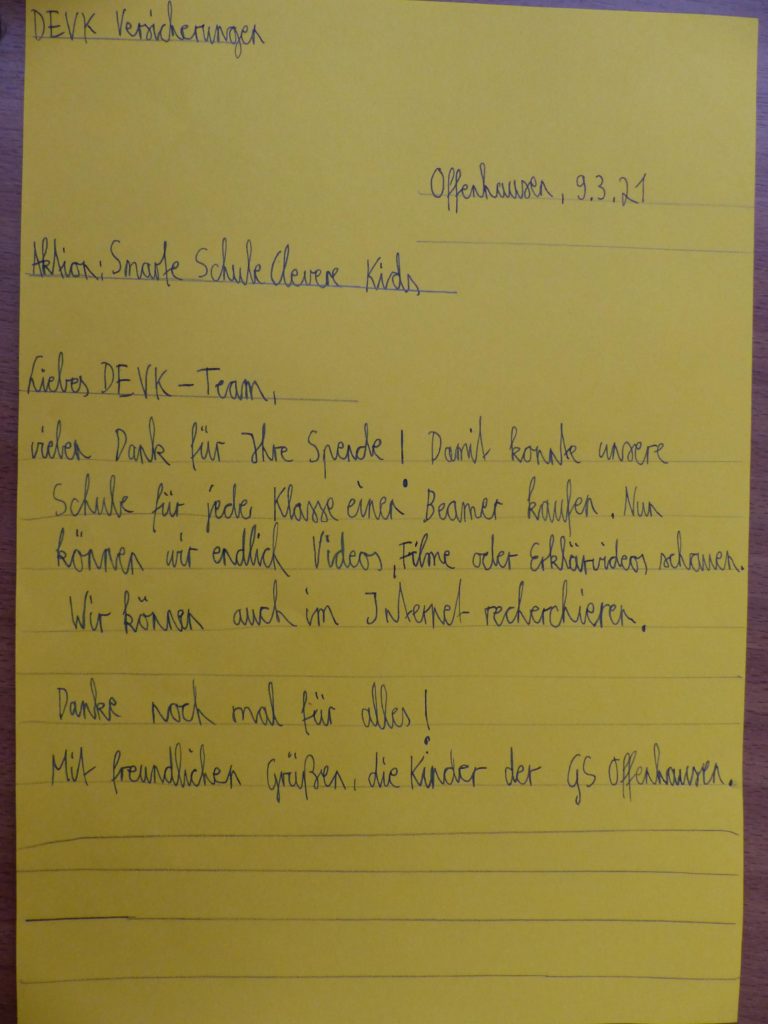 DEVK Versicherungen
Offenhausen, 9.3.21
Aktion: Smarte Schule Clevere Kids
Liebes DEVK-Team,
vielen Dank für Ihre Spende! Damit konnte unsere
Schule für jede Klasse einen Beamer kaufen. Nun
können wir endlich Videos, Filme oder Erklärvideos schauen.
Wir können auch im Internet recherchieren.
Danke noch mal für alles!
Mit freundlichen Grüßen, die Kinder der GS Offenhausen.